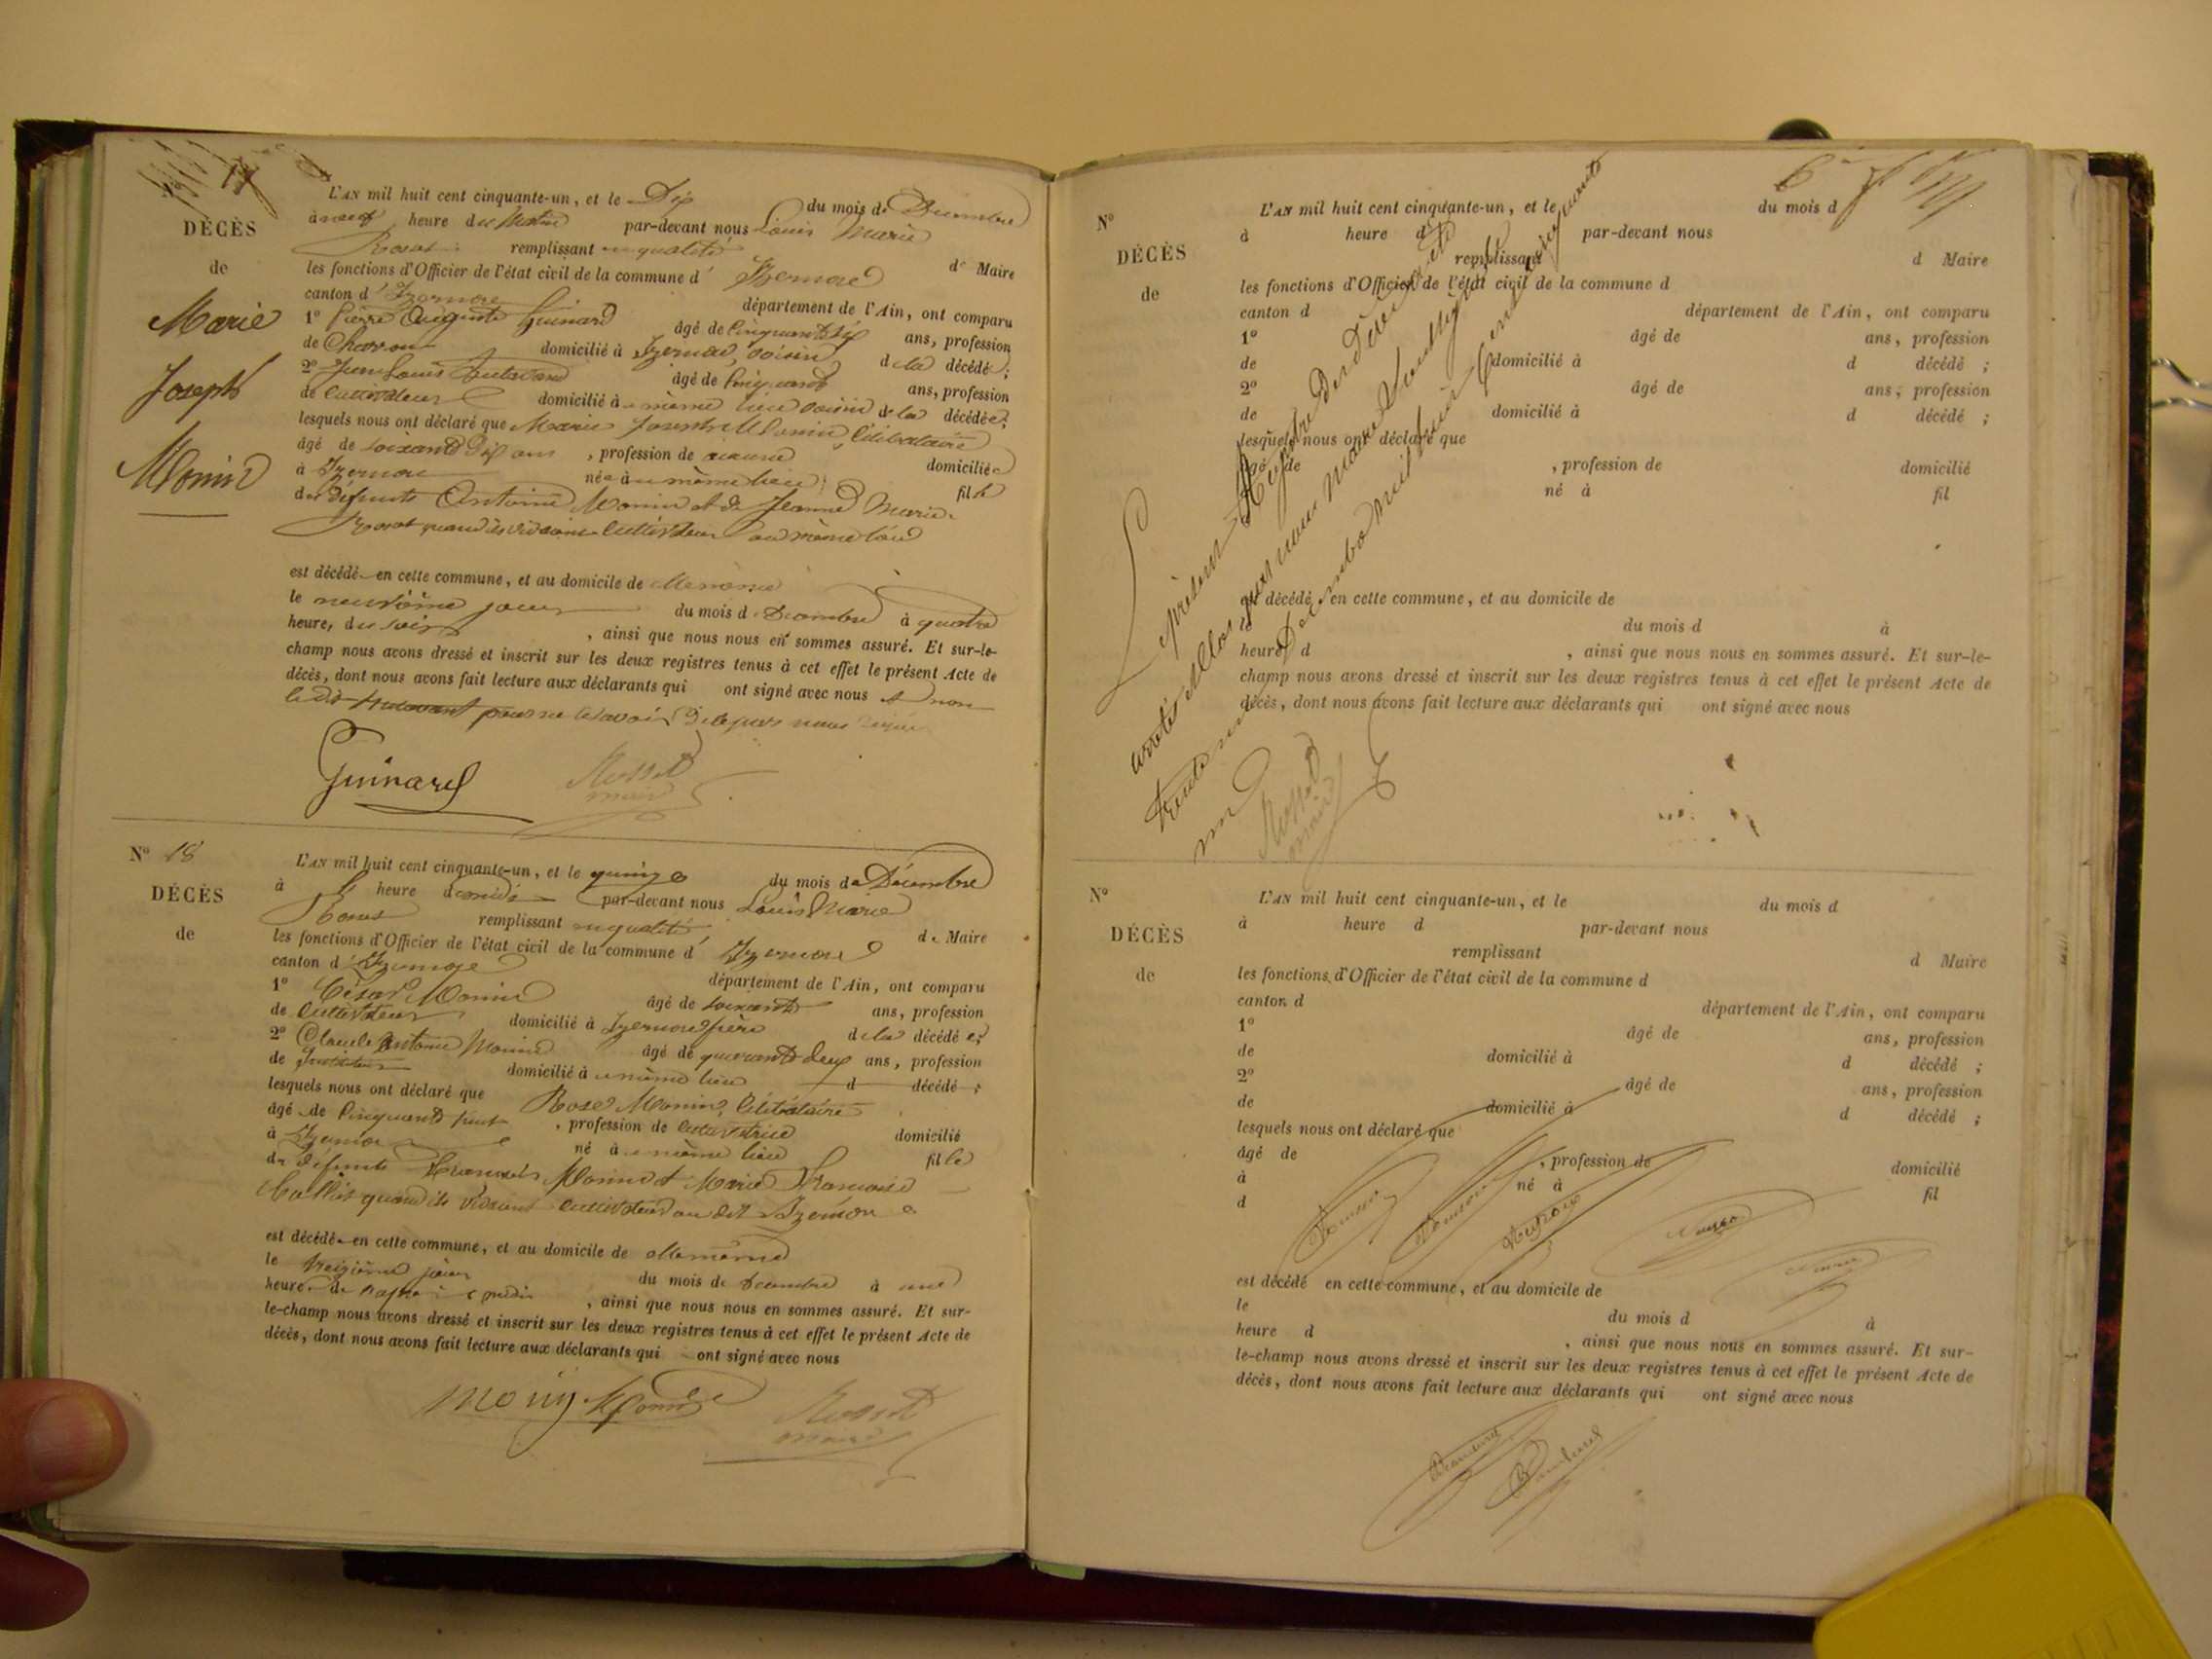 17
L'AN mil huit cent cinquante-un, et le Dix du mois de Décembre
DÉCÈS
à neuf heure du Matin par-devant nous Louis Marie
remplissant en qualité de Maire
de
les fonctions d'Officier de l'état civil de la commune d' Izernore
canton d' Izernore département de l'Ain, ont comparu
Marie
1º Pierre Auguste Guinard âgé de Cinquante six ans, profession
de Charron domicilié à Izernore, voisin de la décédée ;
2º Jean Louis âgé de Cinquante ans, profession
Joseph
de Cultivateur domicilié à même lieu voisin de la décédée ;
lesquels nous ont déclaré que Marie Josephe Monin, Célibataire
âgé de soixante Dix ans , profession de aucune domiciliée
Monin
à Izernore née à même lieu fille
des défunts Antoine Monin et de Jeanne Marie
quand ils vivaient Cultivateurs au même lieu
est décédée en cette commune, et au domicile de elle même
le neuvième jour du mois de Décembre à quatre
heure, du soir , ainsi que nous nous en sommes assuré. Et sur-le-
champ nous avons dressé et inscrit sur les deux registres tenus à cet effet le présent Acte de
décès, dont nous avons fait lecture aux déclarants qui ont signé avec nous et non
le dit pour ne le savoir de ce par nous
Guinard
maire
Nº 18
L'AN mil huit cent cinquante-un, et le quinze du mois de Décembre
DÉCÈS
à heure de midi par-devant nous Louis Marie
remplissant en qualité de Maire
de
les fonctions d'Officier de l'état civil de la commune d' Izernore
canton d' Izernore département de l'Ain, ont comparu
1º César Monin âgé de soixante ans, profession
de Cultivateur domicilié à Izernore frère de la décédée ;
2º Claude Antoine Monin âgé de quarante deux ans, profession
de Instituteur domicilié à même lieu d décédé ;
lesquels nous ont déclaré que Rose Monin, Célibataire
âgé de Cinquante huit , profession de Cultivatrice domicilié
à Izernore né à même lieu fille
de défunts François Monin et Marie Françoise
quand ils vivaient Cultivateurs au dit Izernore
est décédée en cette commune, et au domicile de elle même
le treizième jour du mois de Décembre à une
heure de après midi , ainsi que nous nous en sommes assuré. Et sur-
le-champ nous avons dressé et inscrit sur les deux registres tenus à cet effet le présent Acte de
décès, dont nous avons fait lecture aux déclarants qui ont signé avec nous
monin Monin
maire
Nº
L'AN mil huit cent cinquante-un, et le du mois d
DÉCÈS
à heure d par-devant nous
remplissant d Maire
de
les fonctions d'Officier de l'état civil de la commune d
canton d département de l'Ain, ont comparu
1º âgé de ans, profession
de domicilié à d décédé ;
2º âgé de ans, profession
de domicilié à d décédé ;
lesquels nous ont déclaré que
âgé de , profession de domicilié
né à fil
est décédé en cette commune, et au domicile de
le du mois d à
heure d , ainsi que nous nous en sommes assuré. Et sur-le-
champ nous avons dressé et inscrit sur les deux registres tenus à cet effet le présent Acte de
décès, dont nous avons fait lecture aux déclarants qui ont signé avec nous
Le présent Registre des Décès a été
arrêté et clos par nous Maire soussigné
trente un Décembre mil huit cent cinquante
un
maire
Nº
L'AN mil huit cent cinquante-un, et le du mois d
DÉCÈS
à heure d par-devant nous
remplissant d Maire
de
les fonctions d'Officier de l'état civil de la commune d
canton d département de l'Ain, ont comparu
1º âgé de ans, profession
de domicilié à d décédé ;
2º âgé de ans, profession
de domicilié à d décédé ;
lesquels nous ont déclaré que
âgé de , profession de domicilié
à né à fil
d
est décédé en cette commune, et au domicile de
le du mois d à
heure d , ainsi que nous nous en sommes assuré. Et sur-
le-champ nous avons dressé et inscrit sur les deux registres tenus à cet effet le présent Acte de
décès, dont nous avons fait lecture aux déclarants qui ont signé avec nous